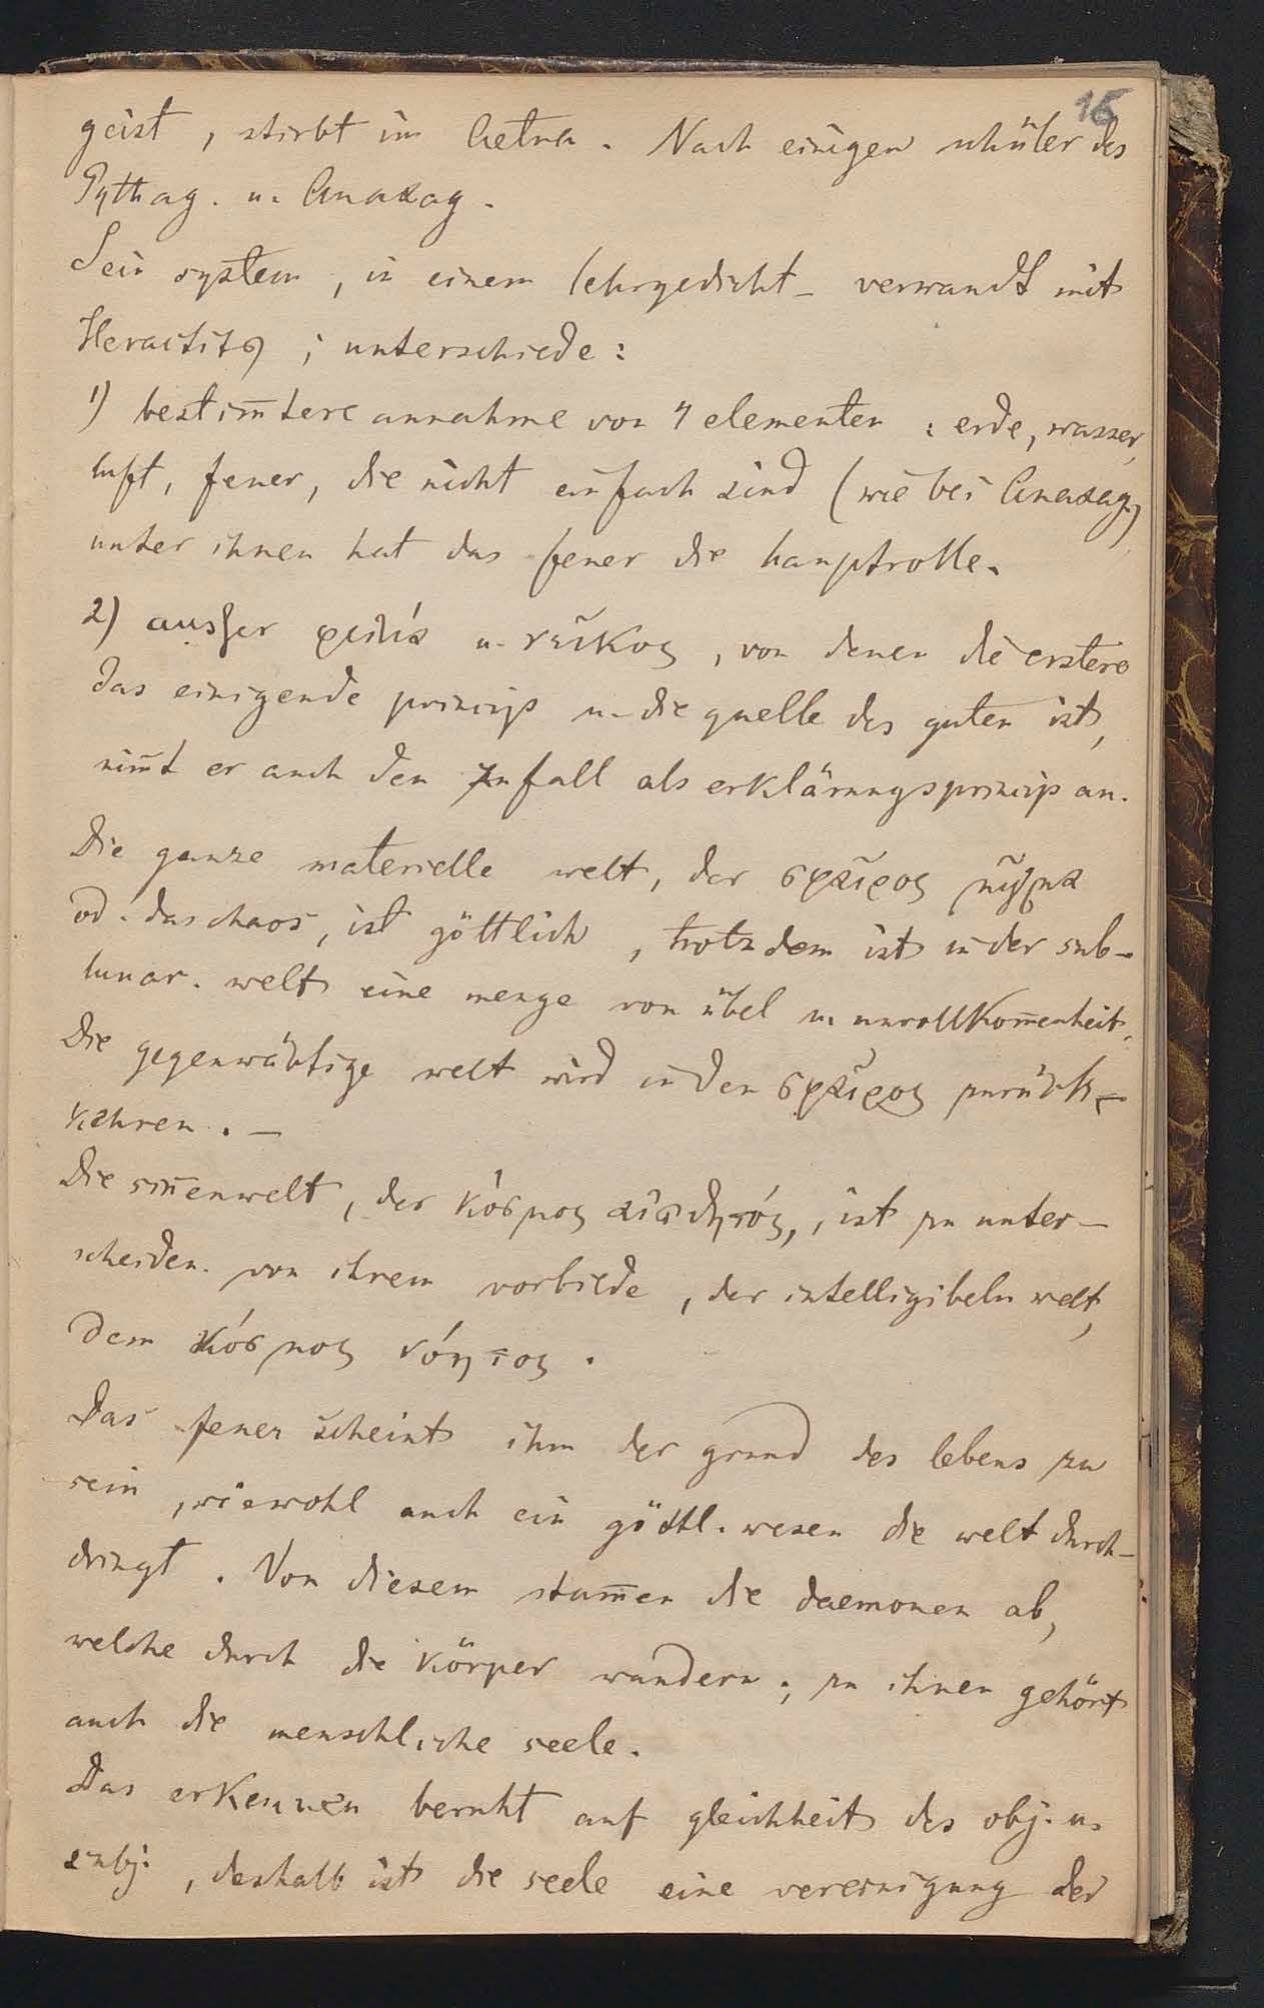 16
geist, stirbt im Aetna. Nach einigen schüler des
Pythag. u. Anaxag.
Sein system, in einem lehrgedicht – verwandt mit
Heraclit; unterschiede:
1) bestim̅tere annahme von 4 elementen: erde, wasser,
luft, feuer, die nicht einfach sind (wie bei Anaxag.)
unter ihnen hat das feuer die hauptrolle.
2) ausser φιλία u. νεῖκος, von denen die erstere
das einigende princip u. die quelle des guten ist,
nim̅t er auch den zufall als erklärungsprincip an.
Die ganze materielle welt, der σφαῖρος
od. das chaos, ist göttlich, trotzdem ist in der sub-
lunar. welt eine menge von übel u. unvollkom̅enheit.
Die gegenwärtige welt wird in den σφαῖρος zurück-
kehren. –
Die sin̅enwelt, der κόσμος αἰσθητός, ist zu unter-
scheiden von ihrem vorbilde, der intelligibeln welt,
dem κόσμος νόητος.
Das feuer scheint ihm der grund des lebens zu
sein, wiewohl auch ein göttl. wesen die welt durch-
dringt. Von diesem stam̅en die daemonen ab,
welche durch die körper wandern; zu ihnen gehört
auch die menschliche seele.
Das erkennen beruht auf gleichheit des obj. u.
subj., deshalb ist die seele eine vereinigung der